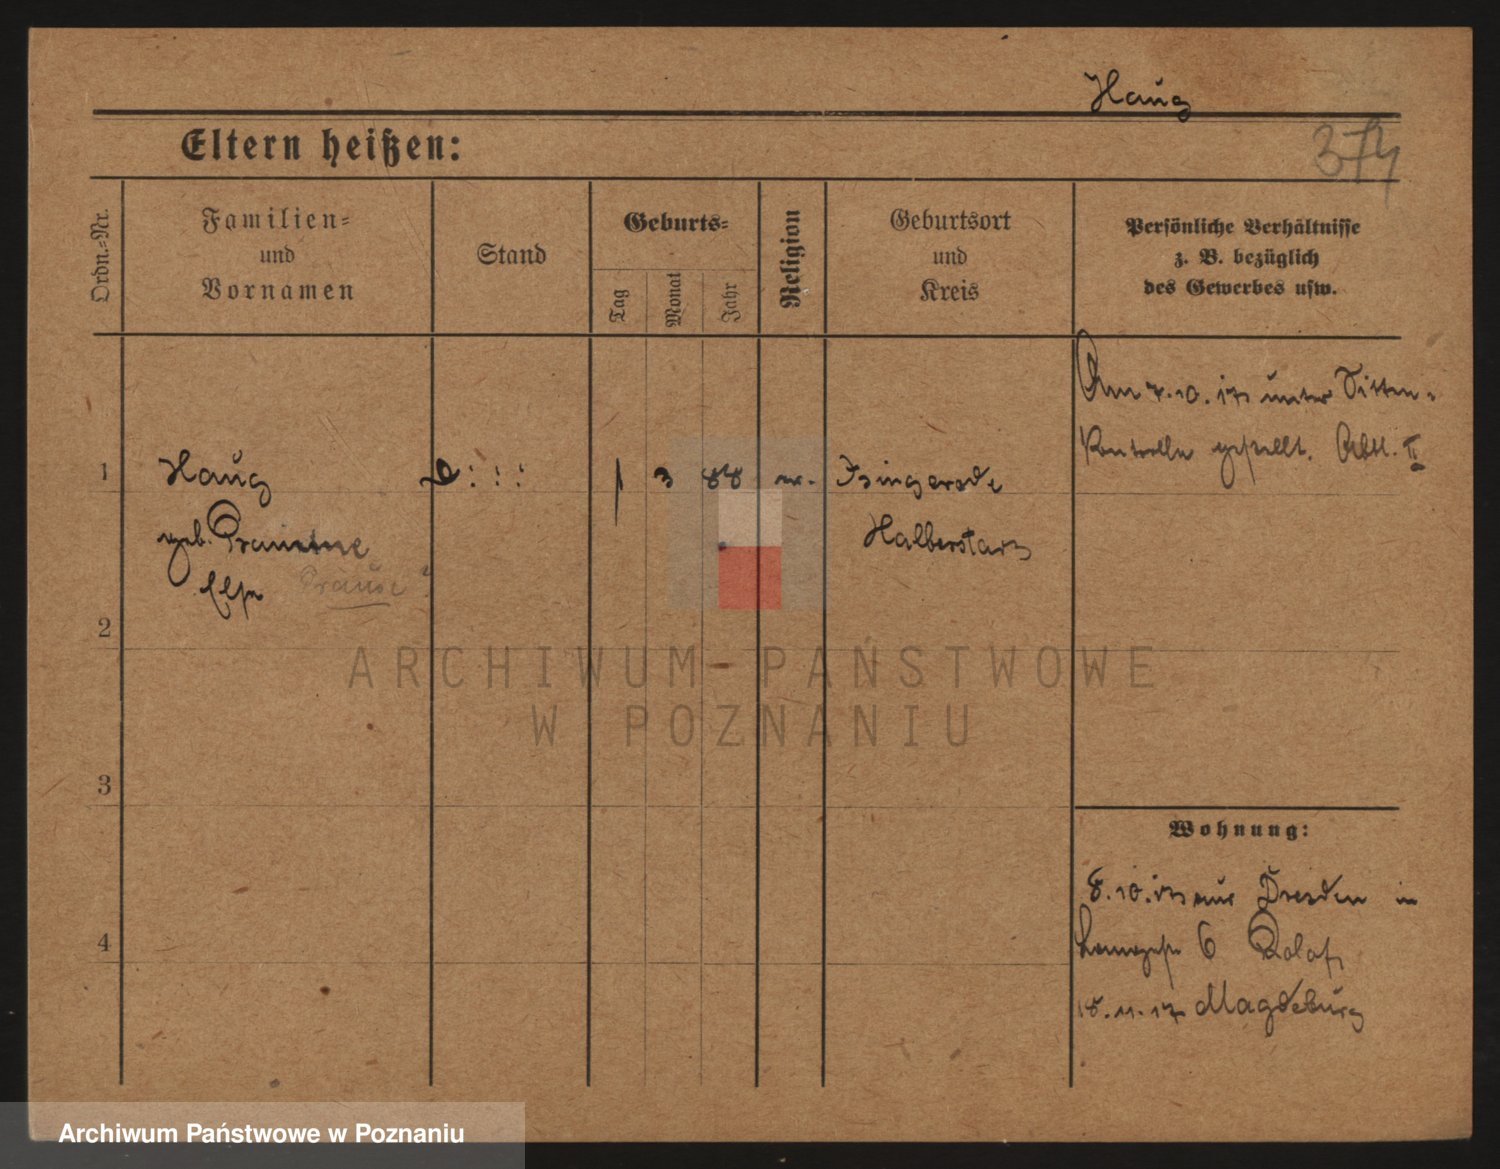 Haug
374
Eltern heißen:
Ordn.=Nr.
Familien=
und
Vornamen
Stand
Geburts=
Tag
Monat
Jahr
Religion
Geburtsort
und
Kreis
Persönliche Verhältnisse
z. B. bezüglich
des Gewerbes usw.
Am 7.10.17 unter Sitten=
Kontrolle gestellt. Abtl. II
1 Haug 1 3 88
geb.
Halberstadt
Else Krause?
2
ARCHIWUM PAŃSTWOWE
W POZNANIU
3
Wohnung:
8.10.17 aus Dresden in
4
6
18.11.17 Magdeburg
Archiwum Państwowe w Poznaniu